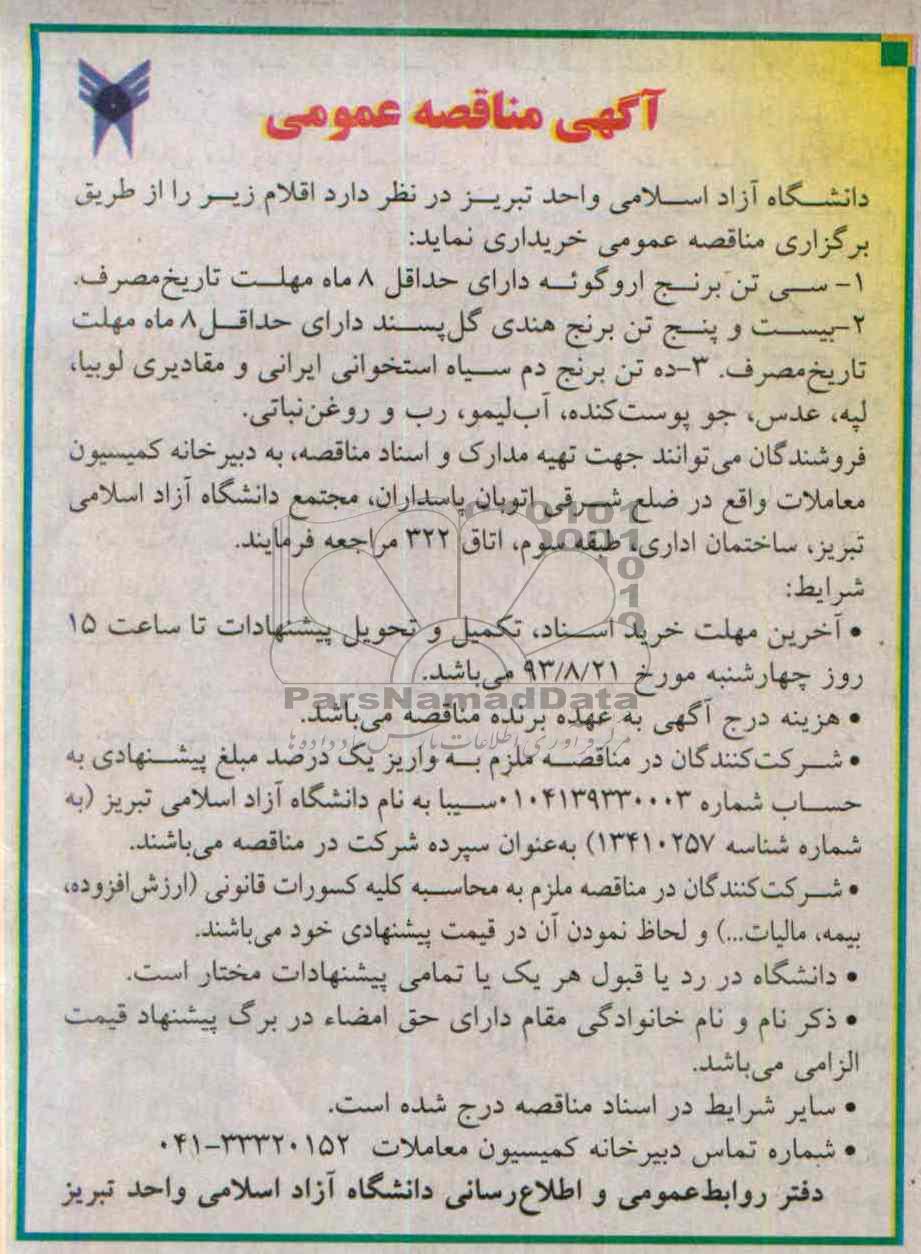 آگهی مناقصه عمومی
دانشگاه آزاد اسلامی واحد تبریز در نظر دارد اقلام زیر را از طریق
برگزاری مناقصه عمومی خریداری نماید:
۱- سی تن برنج اروگوئه دارای حداقل ۸ ماه مهلت تاریخ‌مصرف.
۲-بیست و پنج تن برنج هندی گل‌پسند دارای حداقل۸ ماه مهلت
تاریخ‌مصرف. ۳-ده تن برنج دم سیاه استخوانی ایرانی و مقادیری لوبیا،
لپه، عدس، جو پوست‌کنده، آب‌لیمو، رب و روغن‌نباتی.
فروشندگان می‌توانند جهت تهیه مدارک و اسناد مناقصه، به دبیرخانه کمیسیون
معاملات واقع در ضلع شرقی اتوبان پاسداران، مجتمع دانشگاه آزاد اسلامی
تبریز، ساختمان اداری، طبقه سوم، اتاق ۳۲۲ مراجعه فرمایند.
شرایط:
• آخرین مهلت خرید اسناد، تکمیل و تحویل پیشنهادات تا ساعت ۱۵
روز چهارشنبه مورخ ۹۳/۸/۲۱ می‌باشد.
ParsNamadData
• هزینه درج آگهی به عهده برنده مناقصه می‌باشد.
• شرکت‌کنندگان در مناقصه ملزم به واریز یک درصد مبلغ پیشنهادی به
حساب شماره ۰۱۰۴۱۳۹۳۳۰۰۰۳سیبا به نام دانشگاه آزاد اسلامی تبریز (به
شماره شناسه ۱۳۴۱۰۲۵۷) به‌عنوان سپرده شرکت در مناقصه می‌باشند.
• شرکت‌کنندگان در مناقصه ملزم به محاسبه کلیه کسورات قانونی (ارزش‌افزوده،
بیمه، مالیات...) و لحاظ نمودن آن در قیمت پیشنهادی خود می‌باشند.
• دانشگاه در رد یا قبول هر یک یا تمامی پیشنهادات مختار است.
• ذکر نام و نام خانوادگی مقام دارای حق امضاء در برگ پیشنهاد قیمت
الزامی می‌باشد.
• سایر شرایط در اسناد مناقصه درج شده است.
• شماره تماس دبیرخانه کمیسیون معاملات ۰۴۱-۳۳۳۲۰۱۵۲
دفتر روابط‌عمومی و اطلاع‌رسانی دانشگاه آزاد اسلامی واحد تبریز